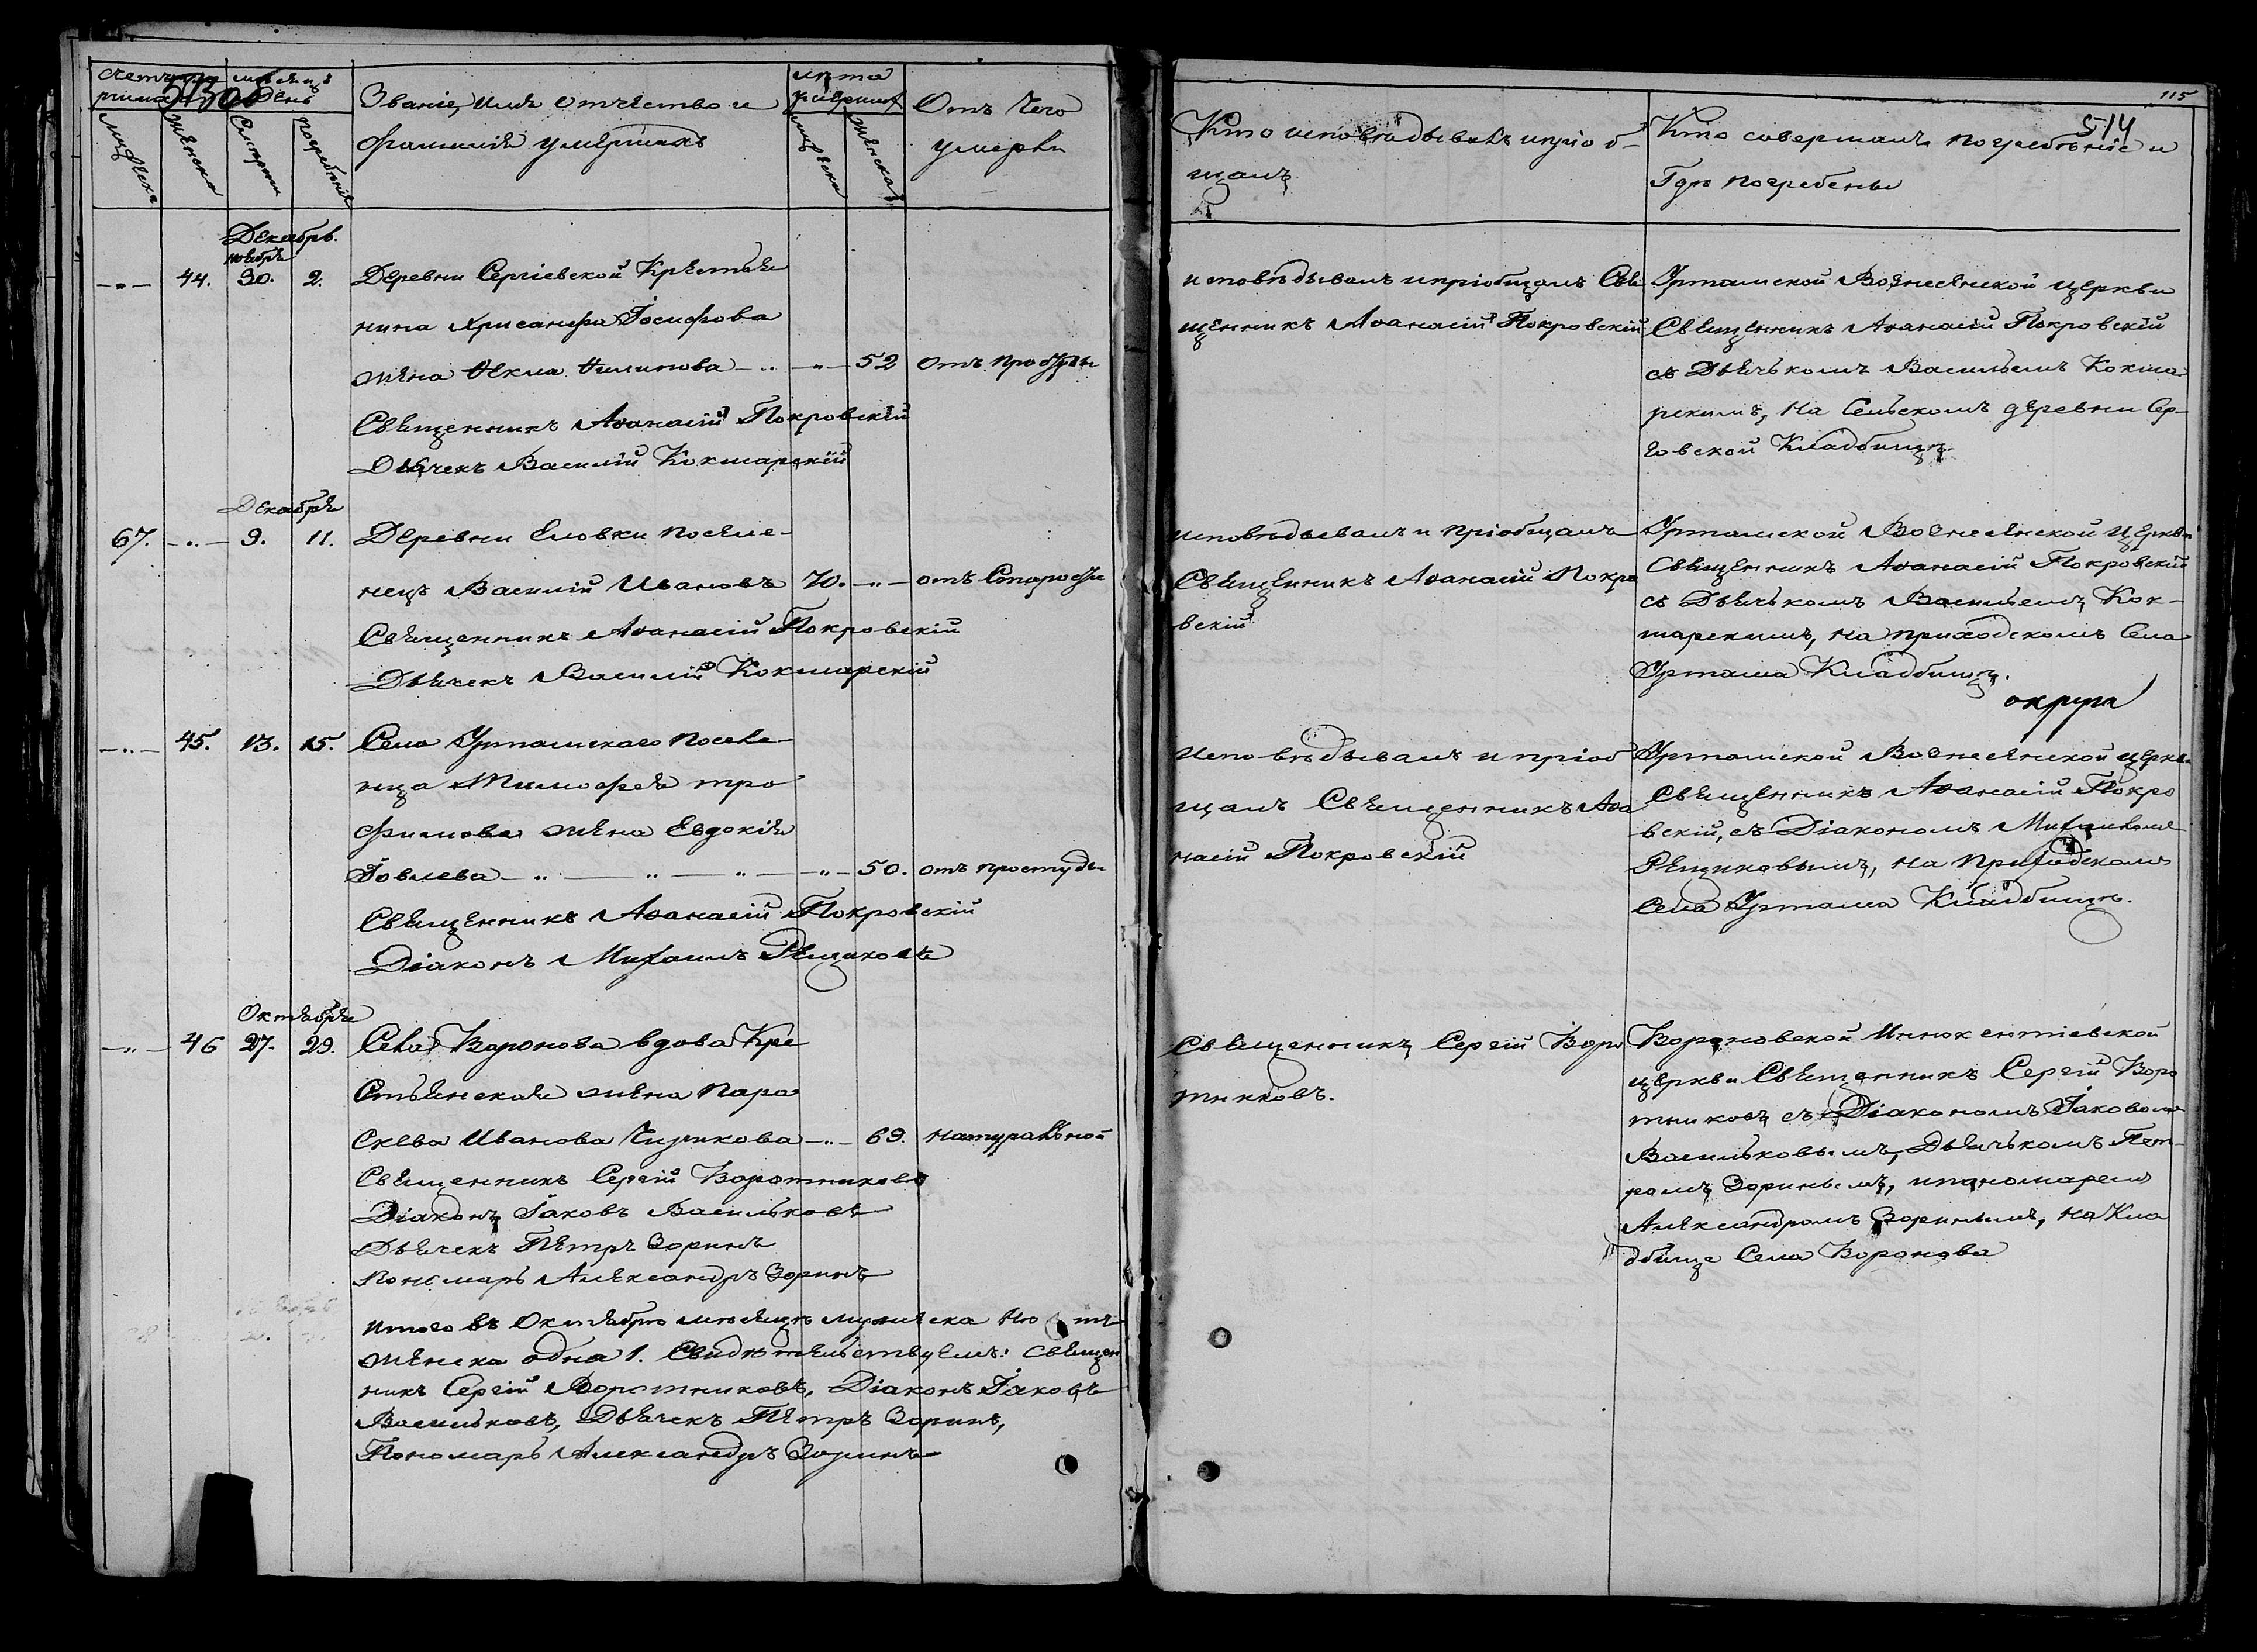 115
513об
514
Счетъ умершихъ
Мѣсяцъ и День
Званіе, имя Отчество и
фамилія умершихъ
лѣта умершихъ
Отъ Чего
умерли
Мужеска
Женска
Смерти
погребенія
мужеска
женска
Кто исповѣдывалъ и пріоб-
щалъ
Кто совершалъ погребѣніе и
Гдѣ погребены
Декабрь.
ноября
-"- 44. 30. 2. Деревни Сергіевской Крестья
нина Хрисанфа Іосифова
жена Ѳекла Филипова -"- -"- 52 отъ простуды
Священникъ Аѳанасій Покровскій
Дьячекъ Василій Кокшарскій
исповѣдывалъ и пріобщалъ Свя
щенникъ Аѳанасій Покровскій
Уртамской Вознесенской церкви
Священникъ Аѳанасій Покровскій
съ Дьячькомъ Васильемъ Кокша
рскимъ, на Сельскомъ деревни Сер-
говской Кладбищѣ.
Декабря
67. -"- 9. 11. Деревни Еловки поселе-
нецъ Василій Ивановъ 70. -"- отъ Старости
Священникъ Аѳанасій Покровскій
Дьячекъ Василій Кокшарскій
исповѣдывалъ и пріобщалъ
Священникъ Аѳанасій Покро
вскій
Уртамской Вознесенской Церкви
Священникъ Аѳанасій Покровскій
съ Дьячькомъ Васильемъ Кок-
шарскимъ, на приходскомъ Села
Уртама Кладбищѣ.
округи
-"- 45. 13. 15. Села Уртамскаго поселе-
нца Тимофея тро
фимова жена Евдокія
Іовлева -"- -"- -"- -"- 50. отъ простуды
Священникъ Аѳанасій Покровскій
Діаконъ Михаилъ Рещиковъ
Исповѣдывалъ и пріоб
щалъ Священникъ Аѳа
насій Покровскій
Уртамской Вознесенской церкви
Священникъ Аѳанасій Покро
вскій, съ Діакономъ Михаиломъ
Рещиковымъ, на Приходскомъ
Села Уртама Кладбищѣ.
Октября
-"- 46 27. 29. Села Воронова вдова Кре
Стьянская жена Пара
скева Иванова Чирикова -"- 69. натуральной
Священникъ Сергій Воротниковъ
Діаконъ Іаковъ Васильковъ
Дьячекъ Петръ Зоринъ
Пономарь Александръ Зоринъ
Священникъ Сергій Воро
тниковъ.
Вороновской Иннокентіевской
церкви Священникъ Сергій Воро
тниковъ съ Діакономъ Іаковомъ
Васильковымъ, Дьячькомъ Пет-
ромъ Зоринымъ, и пономаремъ
Александромъ Зоринымъ, на Кла
дбище Села Воронова
итого въ Октябрѣ мѣсяцѣ мужеска
женска одна 1. Свидѣтельствуемъ: Священ
никъ Сергій Воротниковъ, Діаконъ Іаковъ
Васильковъ, Дьячекъ Петръ Зоринъ,
Пономарь Александръ Зоринъ